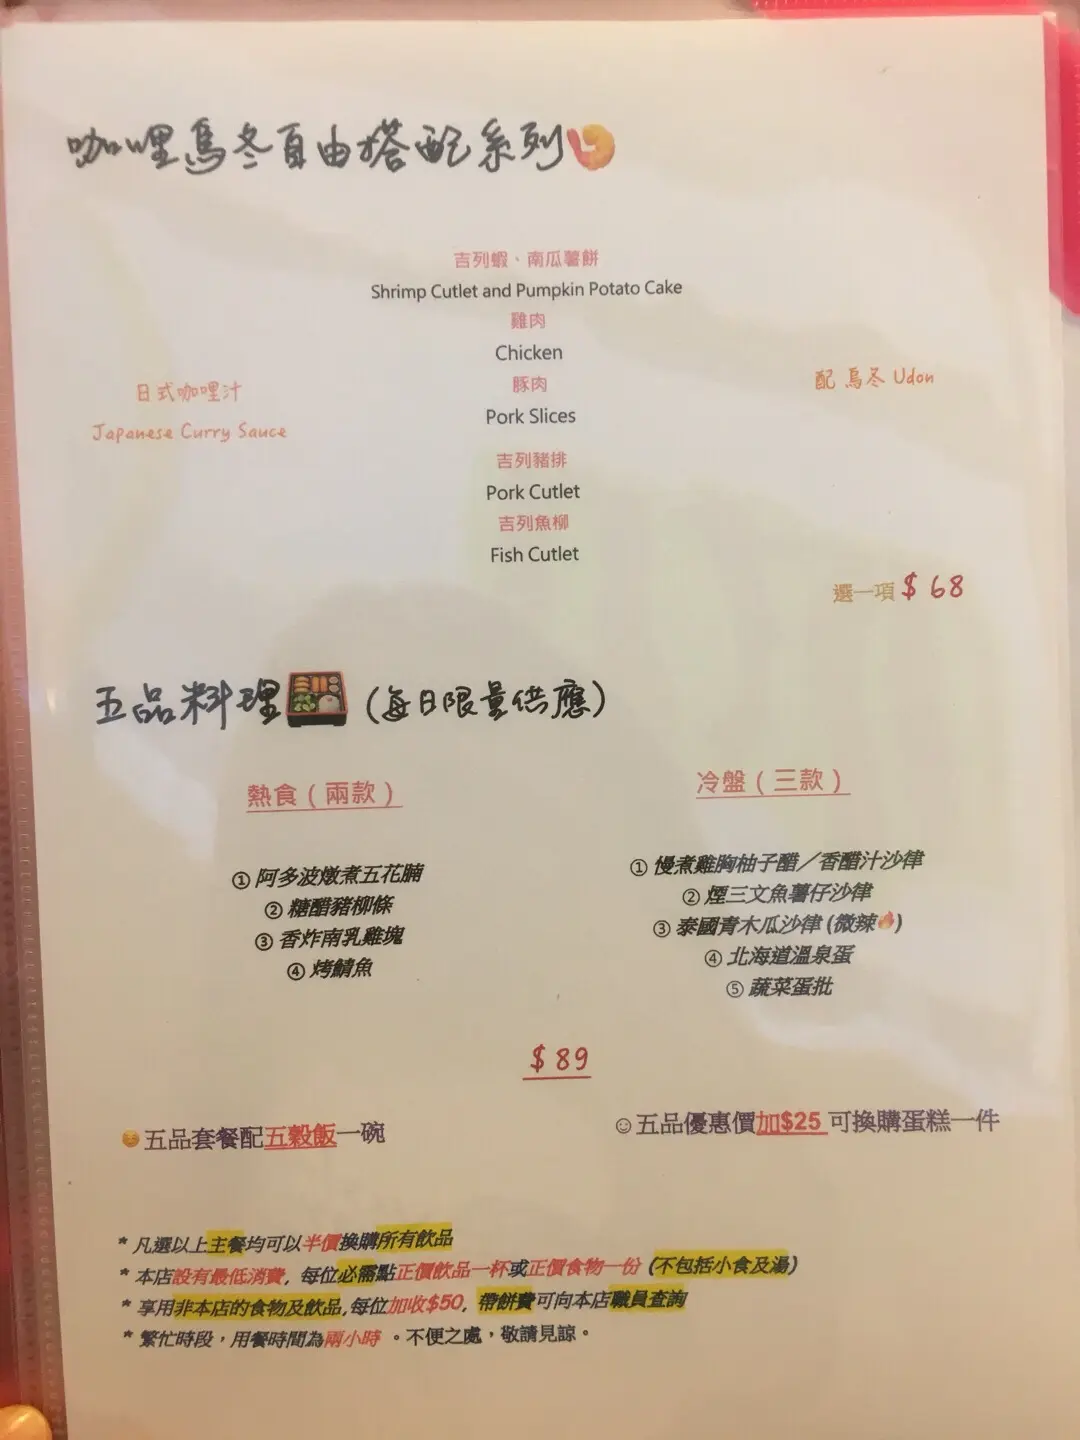 咖哩烏冬自由搭配系列
吉列蝦、南瓜薯餅
Shrimp Cutlet and Pumpkin Potato Cake
雞肉
Chicken
豚肉
Pork Slices
吉列豬排
Pork Cutlet
吉列魚柳
Fish Cutlet
日式咖哩汁
Japanese Curry Sauce
配 烏冬 Udon
選一項 $ 68
五品料理 (每日限量供應)
熱食 ( 兩款 )
① 阿多波燉煮五花腩
② 糖醋豬柳條
③ 香炸南乳雞塊
④ 烤鯖魚
冷盤 ( 三款 )
① 慢煮雞胸柚子醋／香醋汁沙律
② 煙三文魚薯仔沙律
③ 泰國青木瓜沙律 (微辣🔥)
④ 北海道溫泉蛋
⑤ 蔬菜蛋批
$ 89
😊五品套餐配五穀飯一碗
☺五品優惠價加$25 可換購蛋糕一件
* 凡選以上主餐均可以半價換購所有飲品
* 本店設有最低消費, 每位必需點正價飲品一杯或正價食物一份 (不包括小食及湯)
* 享用非本店的食物及飲品,每位加收$50, 帶餅費可向本店職員查詢
* 繁忙時段，用餐時間為兩小時 。不便之處，敬請見諒。